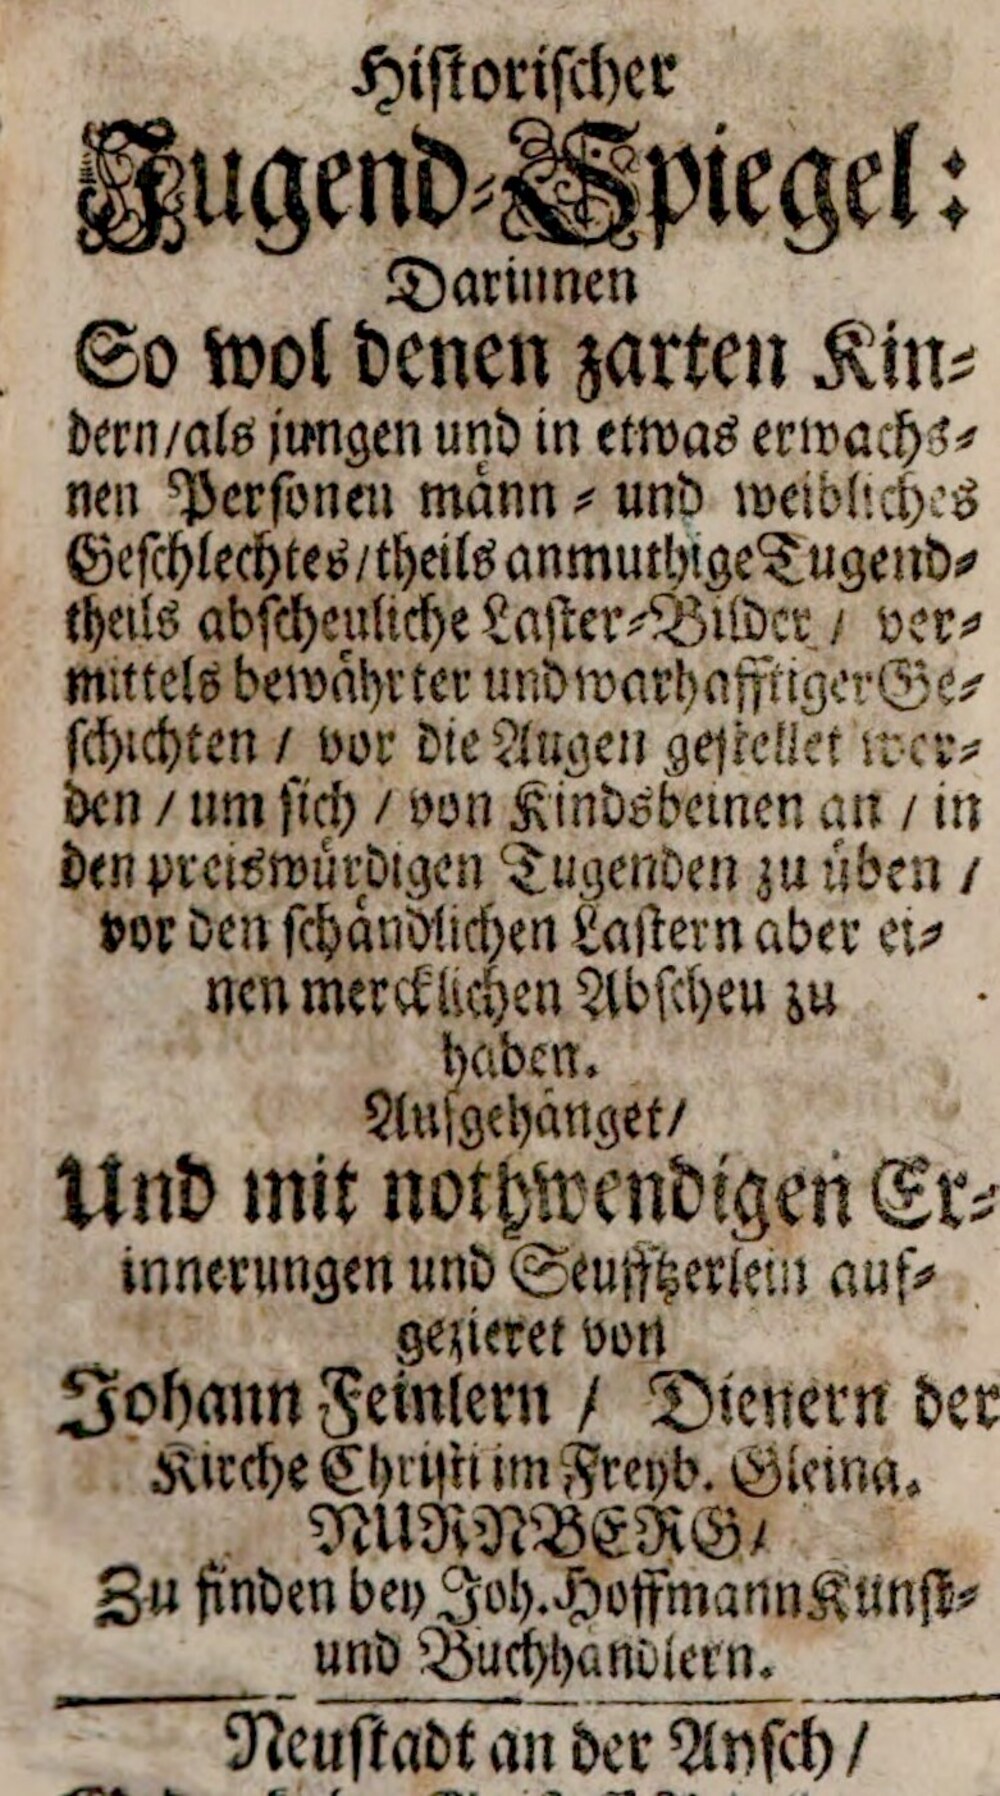 Historischer
Jugend-Spiegel:
Dariunen
So wol denen zarten Kin-
dern/als jungen und in etwas erwachs-
nen Personen männ- und weibliches
Geschlechtes/theils anmuthige Tugend-
theils abscheuliche Laster-Bilder / ver-
mittels bewährter und warhafftiger Ge-
schichten / vor die Augen gestellet wer-
den / um sich / von Kindsbeinen an / in
den preiswürdigen Tugenden zu üben /
vor den schändlichen Lastern aber ei-
nen mercklichen Abscheu zu
haben.
Aufgehänget/
Und mit nothwendigen Er-
innerungen und Seufftzerlein auf-
gezieret von
Johann Feinlern / Dienern der
Kirche Christi im Freyb. Gleina.
NURNBERG/
Zu finden bey Joh. Hoffmann Kunst-
und Buchhändlern.
Neustadt an der Aysch /